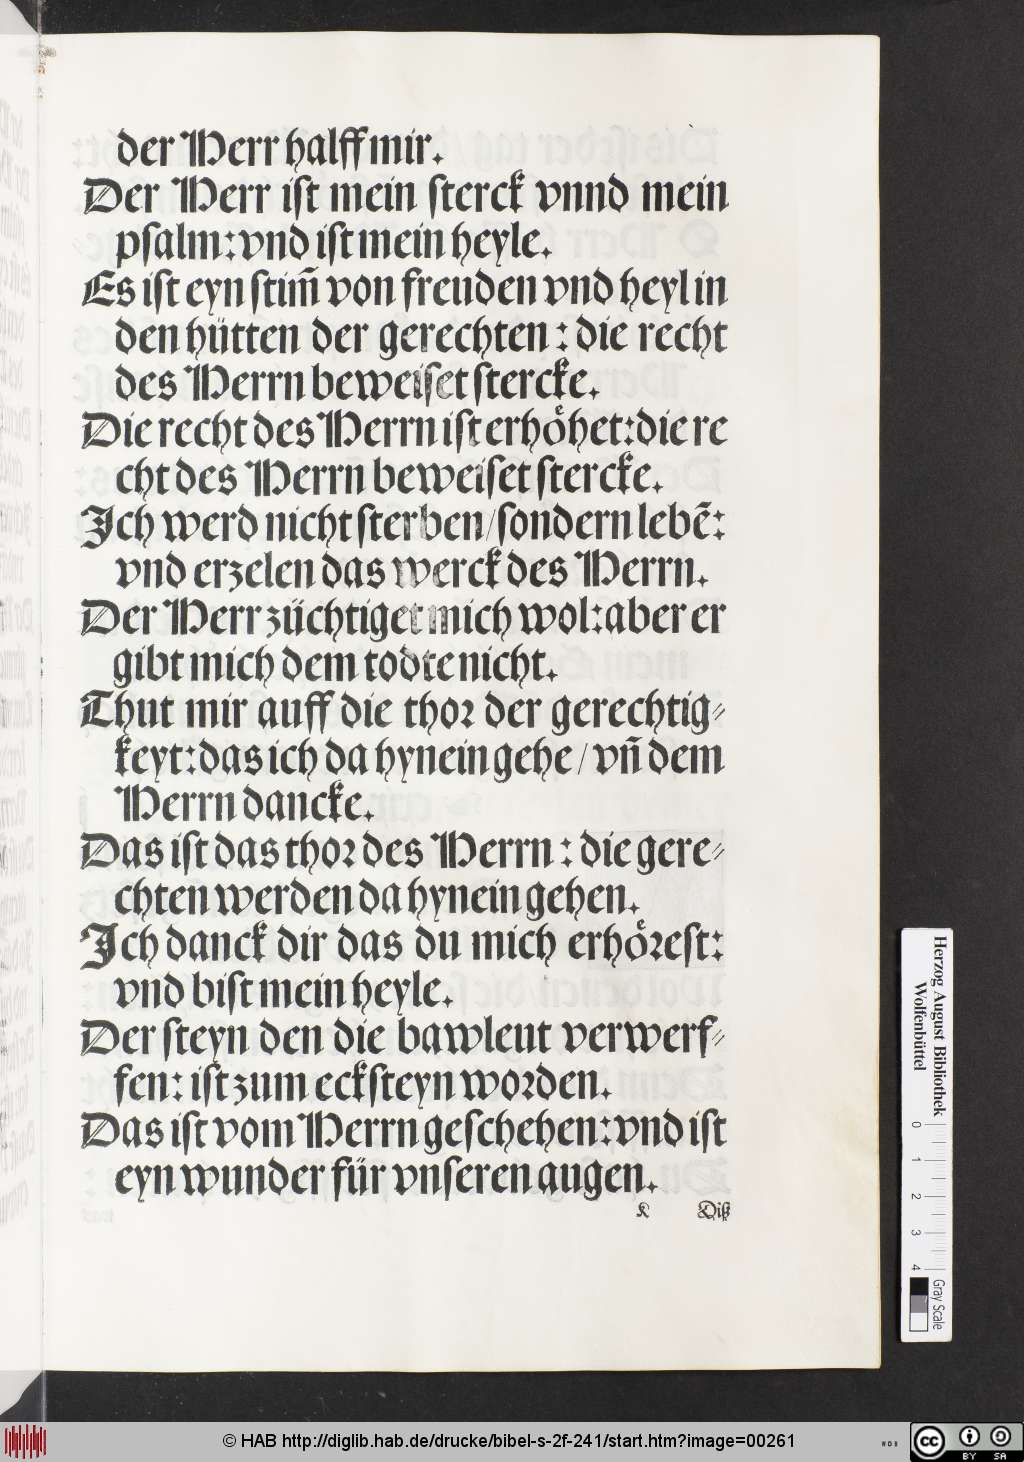 der Herr halff mir.
Der Herr ist mein sterck vnnd mein
psalm: vnd ist mein heyle.
Es ist eyn stim̃ von freuden vnd heyl in
den hütten der gerechten: die recht
des Herrn beweiset stercke.
Die recht des Herrn ist erhoͤhet: die re
cht des Herrn beweiset stercke.
Ich werd nicht sterben/ sondern lebẽ:
vnd erzelen das werck des Herrn.
Der Herr züchtiget mich wol: aber er
gibt mich dem todte nicht.
Thut mir auff die thor der gerechtig⸗
keyt: das ich da hynein gehe/ vñ dem
Herrn dancke.
Das ist das thor des Herrn: die gere⸗
chten werden da hynein gehen.
Ich danck dir das du mich erhoͤrest:
vnd bist mein heyle.
Der steyn den die bawleut verwerf⸗
fen: ist zum ecksteyn worden.
Das ist vom Herrn geschehen: vnd ist
eyn wunder für vnseren augen.
K Diß
Herzog August Bibliothek
Wolfenbüttel
0 1 2 3 4
Gray Scale
© HAB http://diglib.hab.de/drucke/bibel-s-2f-241/start.htm?image=00261
WDB
cc BY SA